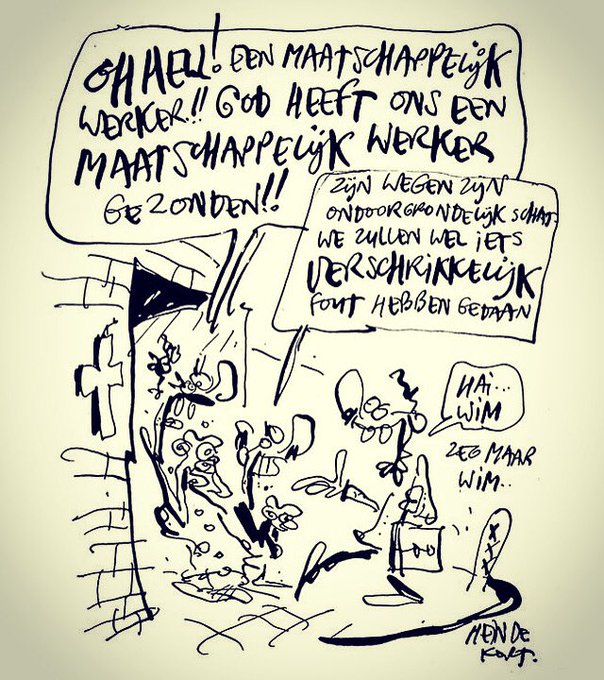 OH HELL! EEN MAATSCHAPPELIJK
WERKER!! GOD HEEFT ONS EEN
MAATSCHAPPELIJK WERKER
GEZONDEN!!
ZIJN WEGEN ZIJN
ONDOORGRONDELIJK SCHAT.
WE ZULLEN WEL IETS
VERSCHRIKKELIJK
FOUT HEBBEN GEDAAN
HAI...
WIM
ZEG MAAR
WIM..
HEIN DE
KORT.